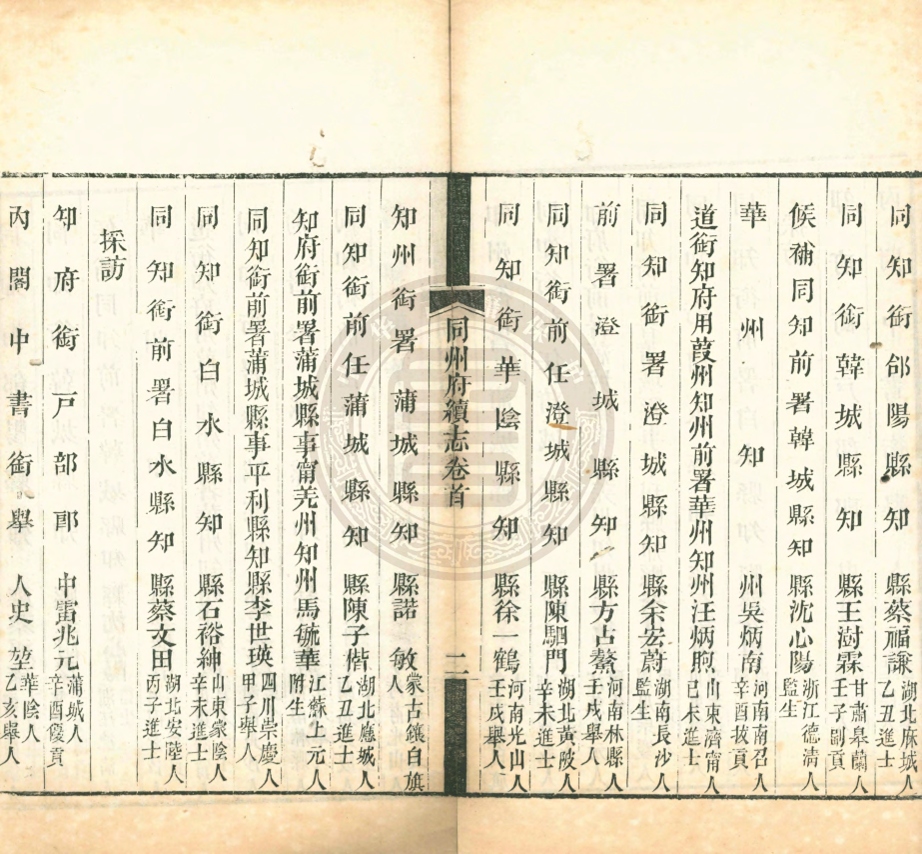 同知銜郃陽縣知縣蔡福謙湖北麻城人乙丑進士
同知銜韓城縣知縣王澍霖甘肅皋蘭人壬子副貢
候補同知前署韓城縣知縣沈心陽浙江德清人監生
華州知州吳炳南河南南召人辛酉拔貢
道銜知府用葭州知州前署華州知州汪炳煦山東濟甯人己未進士
同知銜署澄城縣知縣余宏蔚湖南長沙人監生
前署澄城縣知縣方占鰲河南林縣人壬戌舉人
同知銜前任澄城縣知縣陳駟門湖北黃陂人辛未進士
同知銜華陰縣知縣徐一鶴河南光山人壬戌舉人
同州府續志卷首 二
知州銜署蒲城縣知縣諾敏蒙古鑲白旗人
同知銜前任蒲城縣知縣陳子楷湖北應城人乙丑進士
知府銜前署蒲城縣事甯羌州知州馬毓華江蘇上元人附生
同知銜前署蒲城縣事平利縣知縣李世瑛四川崇慶人甲子舉人
同知銜白水縣知縣石裕紳山東蒙陰人辛未進士
同知銜前署白水縣知縣蔡文田湖北安陸人丙子進士
採訪
知府銜戸部郎中雷兆元蒲城人辛酉拔貢
內閣中書銜舉人史堃華陰人乙亥舉人